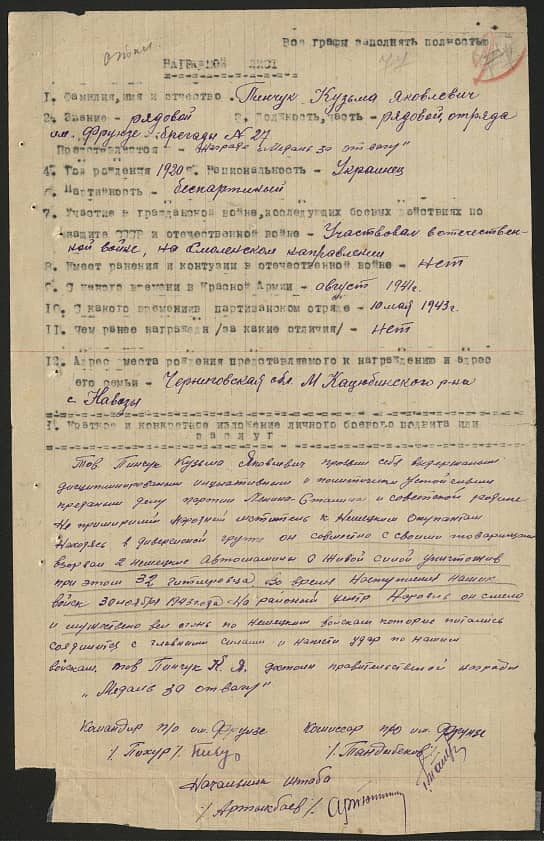 Все графы заполнять полностью
НАГРАДНОЙ ЛИСТ
1. Фамилия, имя и отчество - Пинчук Кузьма Яковлевич
2. Звание - рядовой 3. Должность, часть - рядовой, отряда
им. Фрунзе бригады № 27
Представляется - к награде "Медаль за отвагу"
4. Год рождения 1920 г. Национальность - Украинец
6. Партийность - беспартийный
7. Участие в гражданской войне, последующих боевых действиях по
защите СССР и отечественной войне - Участвовал в отечествен-
ной войне, на Смоленском направлении
8. Имеет ранения и контузии в отечественной войне - нет
9. С какого времени в Красной Армии - август 1941 г.
10. С какого времени в партизанском отряде - 10 май 1943 г.
11. Чем ранее награжден /за какие отличия/ - нет
12. Адрес места рождения представляемого к награждению и адрес
его семьи - Черниговская обл. М Коцюбинского р-на
с Навозы
1. Краткое и конкретное изложение личного боевого подвига или
заслуг
Тов Пинчук Кузьма Яковлевич проявил себя выдержаным
дисциплинированым инциативным и политически устойчивым
преданым делу партии Ленина-Сталина и советской родине
Не примиримий народний мститель к Немецким Окупантам
Находясь в диверсионой групе он совместно с своими товарищами
взорвал 2 немецкие Автомашины с Живой силой уничтожив
при этом 32 гитлеровца. Во время Наступления наших
войск 30 ноября 1943 года На районий центр Наровль он смело
и мужествено вел огонь по Немецким войскам которие питались
соединится с главными силами и нанести удар по нашим
войскам. Тов Пинчук К. Я. достоин правительственой награды
"Медаль за отвагу"
Командир п/о им. Фрунзе Комиссар п/о им. Фрунзе
/Тандыбеков/
Начальник штаба
/Артыкбаев/